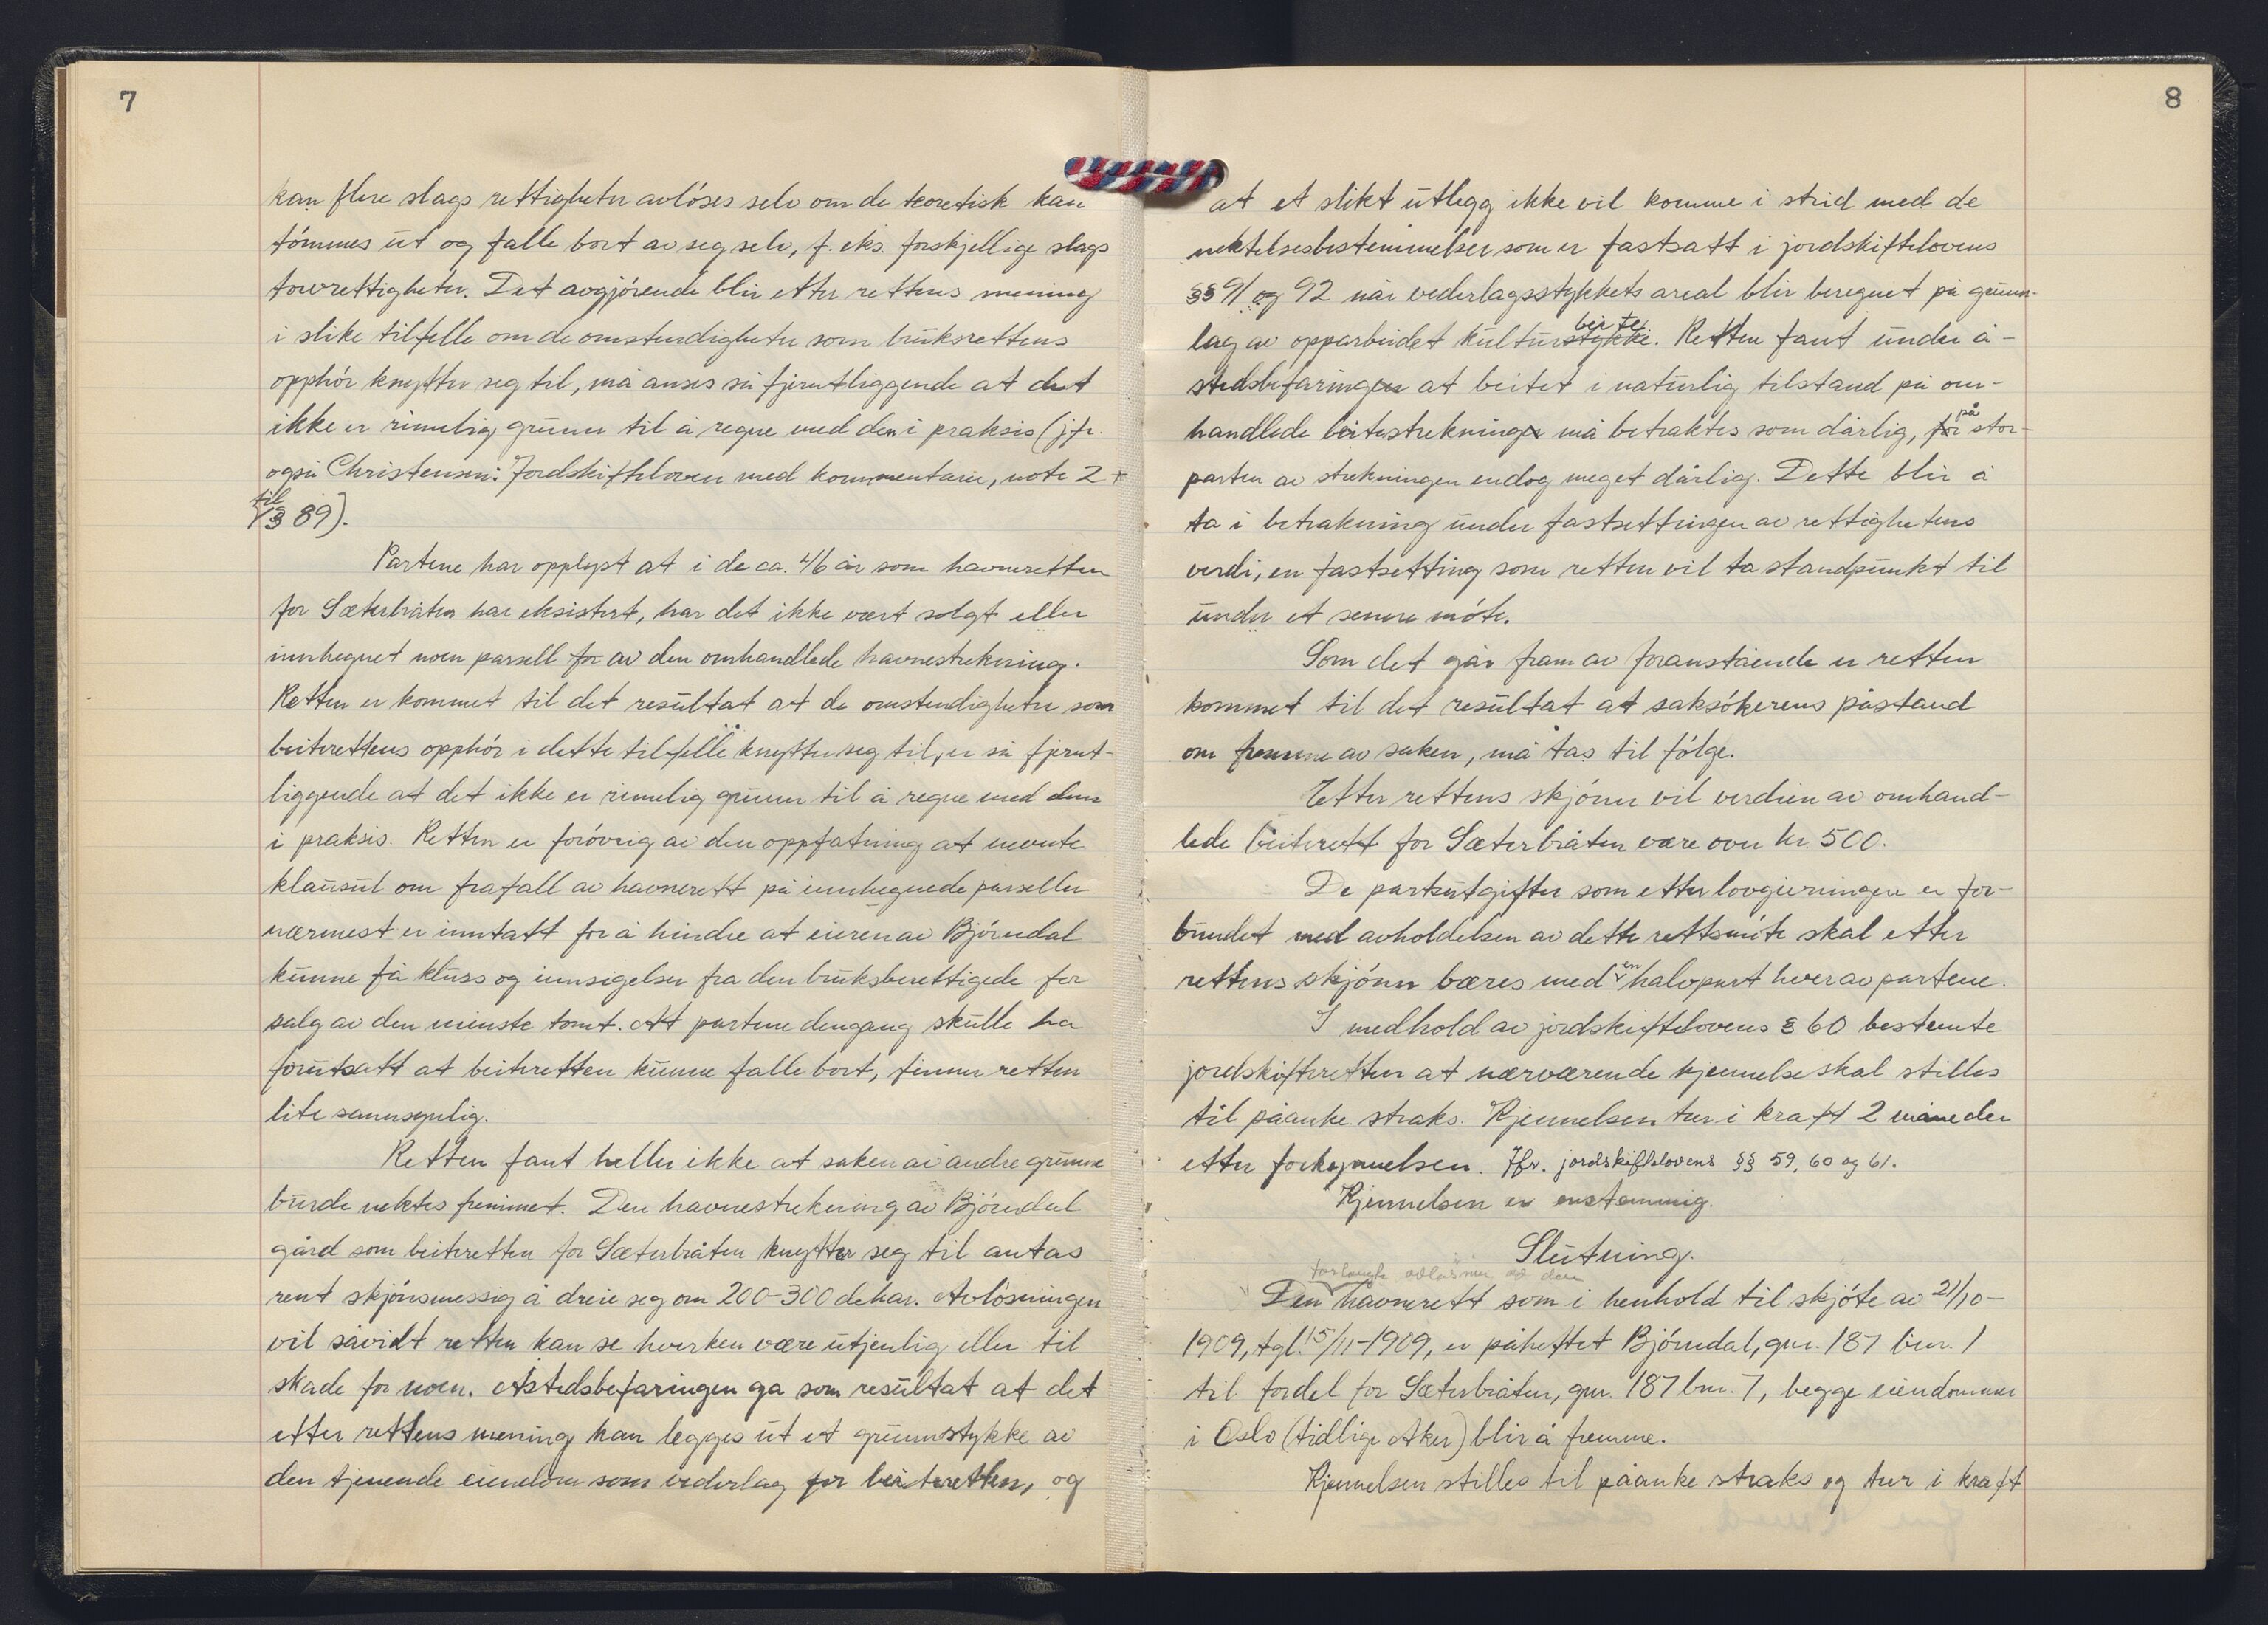 7
kan flere slags rettigheter avlöses selv om de teoretisk kan
tömmes ut og falle bort av seg selv, f. eks. forskjellige slags
torvrettigheter. Det avgjörende blir etter rettens mening
i slike tilfelle om de omstendigheter som bruksrettens
opphör knytter seg til, må anses så fjerntliggende at det
ikke er rimelig grunn til å regne med den i praksis (jfr.
også Christensen: Jordskifteloven med kommentarer, note 2
til § 89).
Partene har opplyst at i de ca. 46 år som havneretten
for Sæterbråten har eksistert, har det ikke vært solgt eller
innhegnet noen parsell for av den omhandlede havnestrekning.
Retten er kommet til det resultat at de omstendigheter som
beiterettens opphör i dette tilfelle knytter seg til, er så fjernt-
liggende at det ikke er rimelig grunn til å regne med dem
i praksis. Retten er forövrig av den oppfatning at nevnte
klausul om frafall av havnerett på innhegnede parseller
nærmest er inntatt for å hindre at eieren av Björndal
kunne få kluss og innsigelser fra den bruksberettigede for
salg av den minste tomt. At partene dengang skulle ha
forutsatt at beiteretten kunne falle bort, finner retten
lite sannsynlig.
Retten fant heller ikke at saken av andre grunne
burde nektes fremmet. Den havnestrekning av Björndal
gård som beiteretten for Sæterbråten knytter seg til antas
rent skjönsmessig å dreie seg om 200-300 dekar. Avlösningen
vil såvidt retten kan se hverken være utjenlig eller til
skade for noen. Åstedsbefaringen ga som resultat at det
etter rettens mening kan legges ut et grunnstykke av
den tjenende eiendom som vederlag for beiteretten, og
8
at et slikt utlegg ikke vil komme i strid med de
nektelsesbestemmelser som er fastsatt i jordskiftelovens
§§ 91 og 92 når vederlagsstykkets areal blir beregnet på grunn-
lag av opparbeidet kulturstykke beite. Retten fant under å-
stedsbefaringen at beitet i naturlig tilstand på om-
handlede beitestrekninger må betraktes som dårlig, for på stor-
parten av strekningen endog meget dårlig. Dette blir å
ta i betrakning under fastsettingen av rettighetens
verdi, en fastsetting som retten vil ta standpunkt til
under et senere möte.
Som det går fram av foranstående er retten
kommet til det resultat at saksökerens påstand
om fremme av saken, må tas til fölge.
Etter rettens skjönn vil verdien av omhand-
lede beiterett for Sæterbråten være over kr. 500.
De partsutgifter som etter lovgivningen er for-
bundet med avholdelsen av dette rettsmöte skal etter
rettens skjönn bæres med en halvpart hver av partene.
I medhold av jordskiftelovens § 60 bestemte
jordskifteretten at nærværende kjennelse skal stilles
til påanke straks. Kjennelsen trer i kraft 2 måneder
etter forkynnelsen. Jfr. jordskiftelovens §§ 59, 60 og 61.
Kjennelsen er enstemmig.
Slutning.
forlangte avlösning av den
Den havnerett som i henhold til skjöte av 21/10-
1909, tgl. 15/11-1909, er påheftet Björndal, gnr. 187 bnr. 1
til fordel for Sæterbråten, gnr. 187 bnr. 7, begge eiendommer
i Oslo (tidlige Aker) blir å fremme.
Kjennelsen stilles til påanke straks og trer i kraft